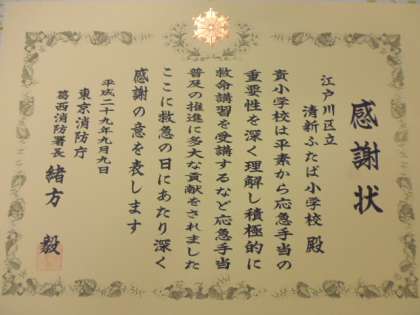 感謝状
江戸川区立
清新ふたば小学校 殿
貴小学校は平素から応急手当の
重要性を深く理解し積極的に
救命講習を受講するなど応急手当
普及の推進に多大な貢献をされました
ここに救急の日にあたり深く
感謝の意を表します
平成二十九年九月九日
東京消防庁
葛西消防署長 緒方 毅